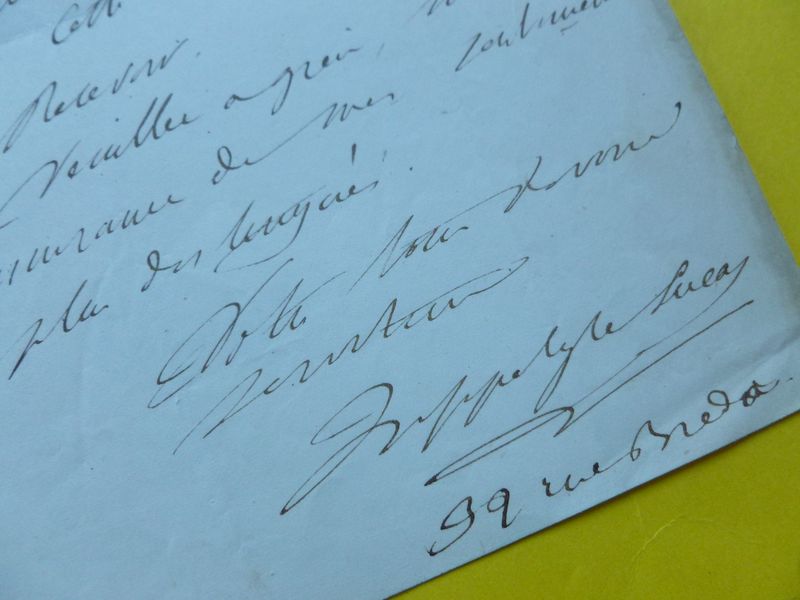 Cette
Recevoir.
Veuillez agréer,
assurance de mes sentiments
plus distingués.
Votre tout dévoué
serviteur
Hippolyte Lucas
39 rue Breda.